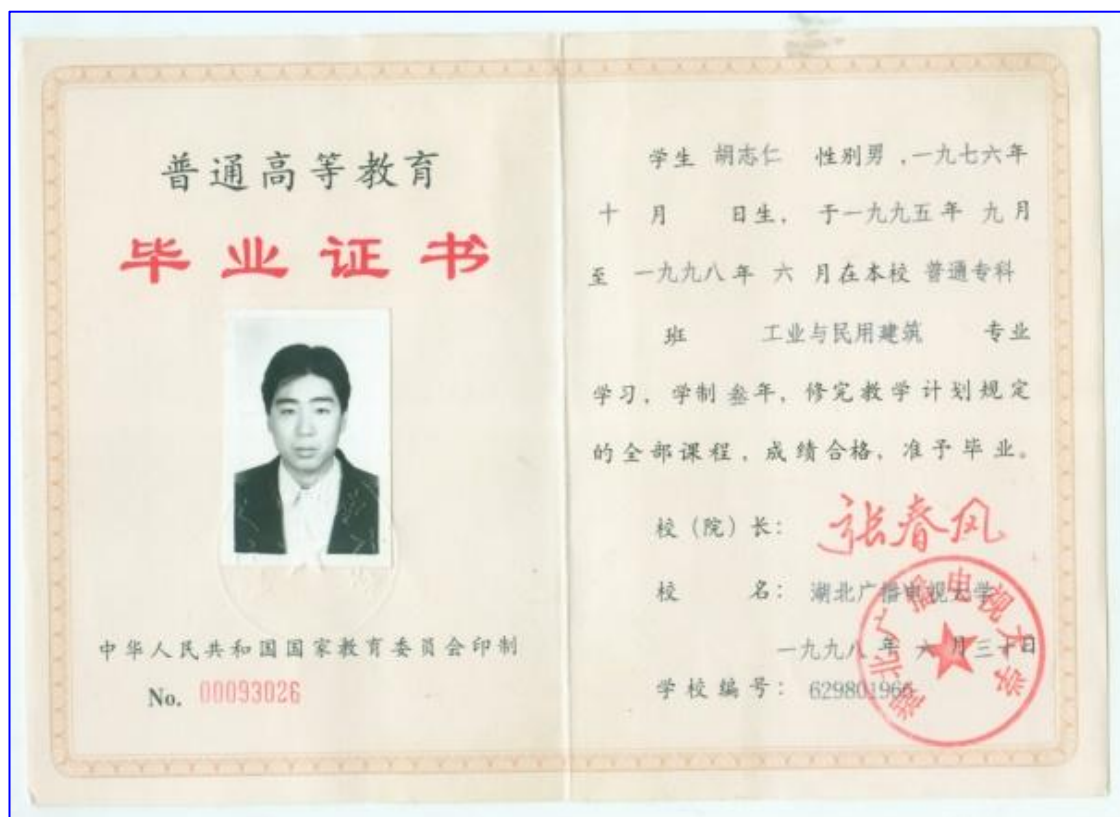 普通高等教育
毕业证书
中华人民共和国国家教育委员会印制
No. 00093026
学生 胡志仁 性别男，一九七六年
十 月 日生，于一九九五年 九月
至 一九九八年 六 月在本校 普通专科
班 工业与民用建筑 专业
学习，学制叁年，修完教学计划规定
的全部课程，成绩合格，准予毕业。
校（院）长： 张春风
校 名： 湖北广播电视大学
一九九八年六月三十日
学校编号： 629801966
湖北广播电视大学